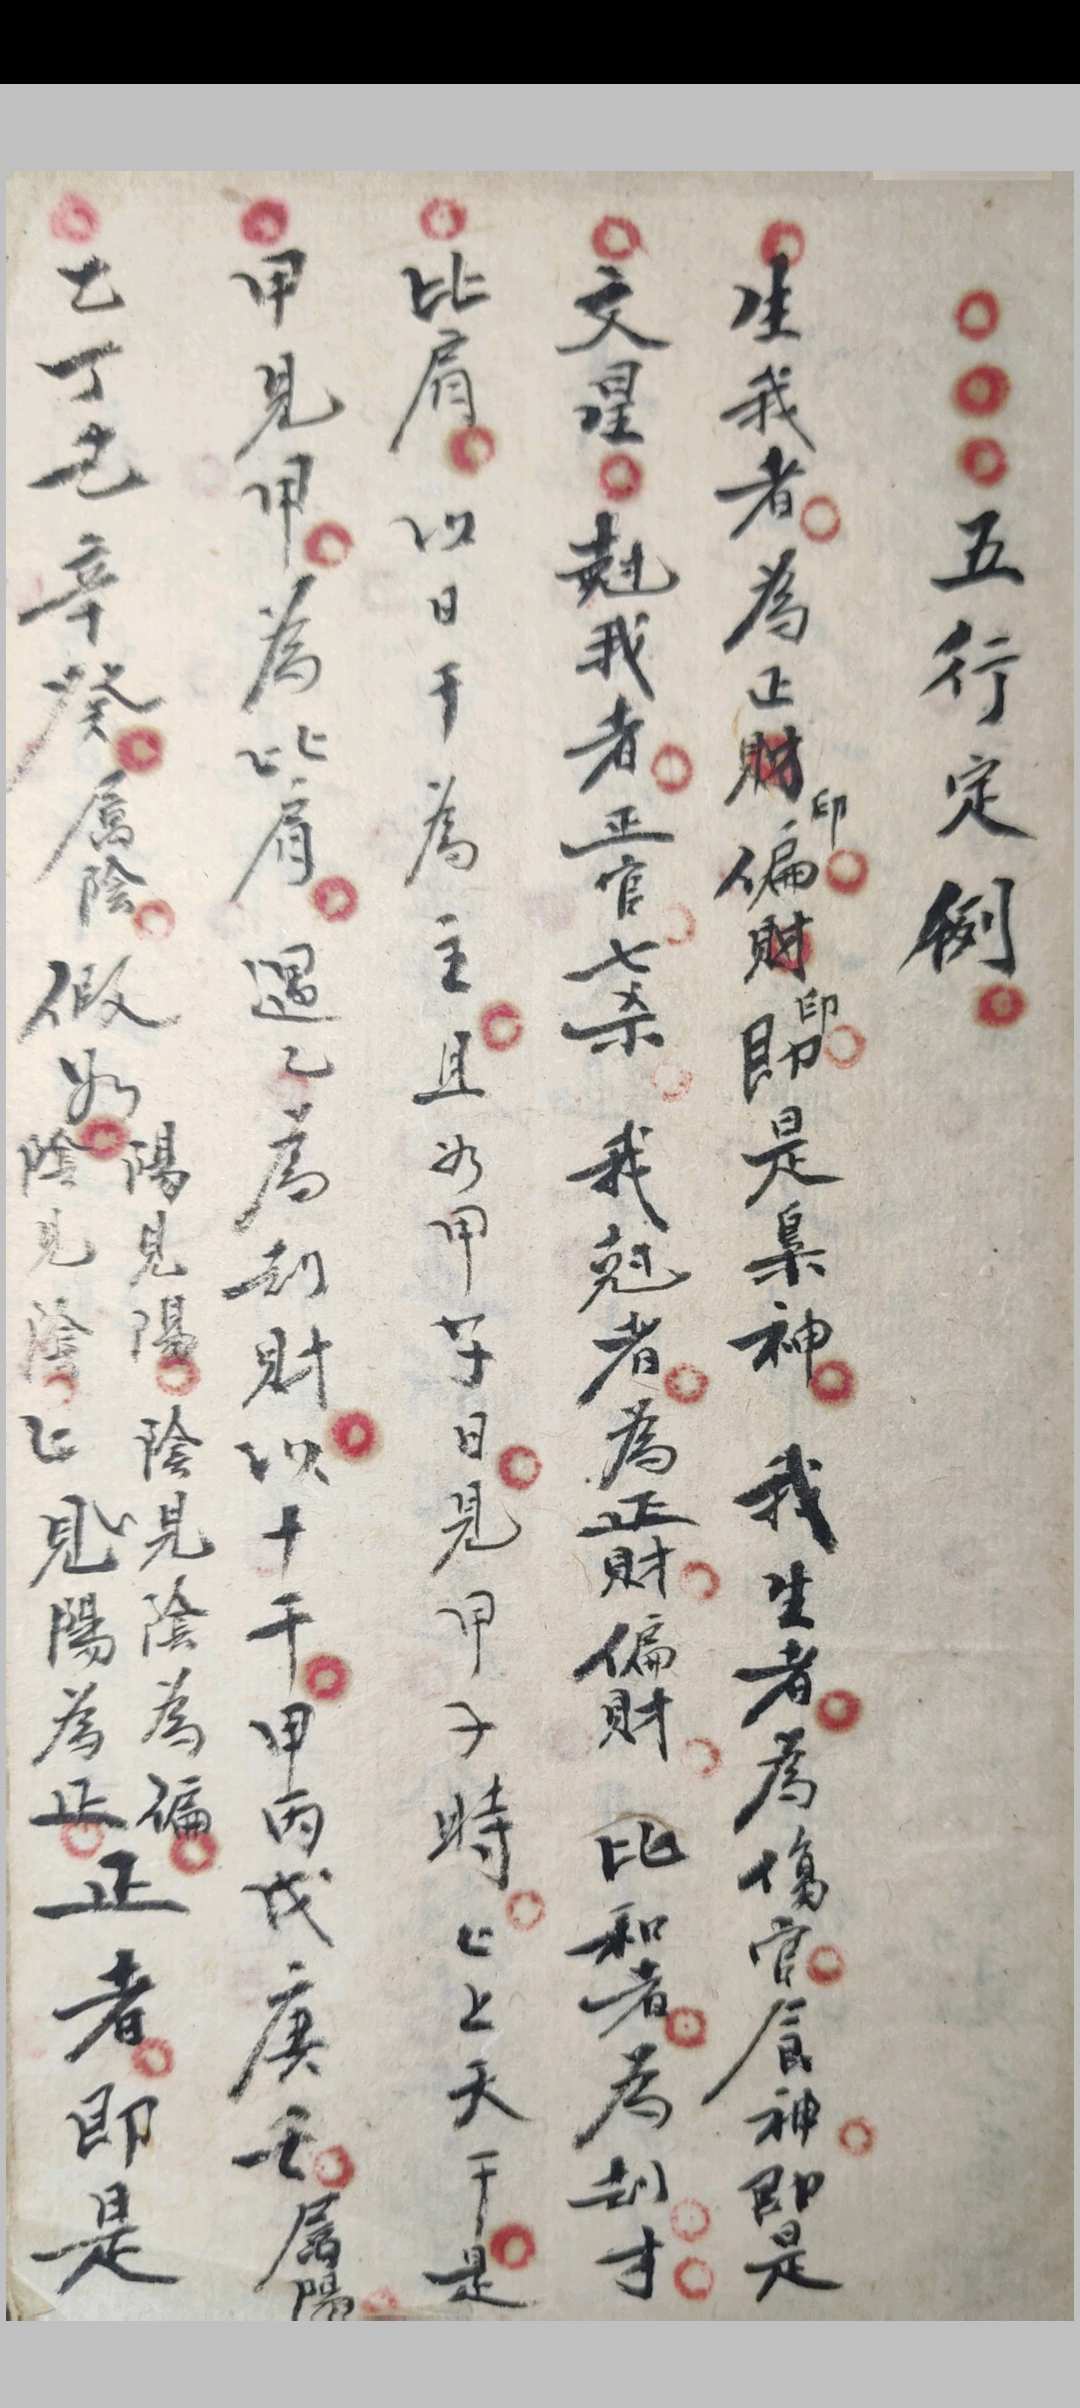 五行定例
生我者為正財印偏財印即是梟神我生者為傷官食神即是
文星尅我者正官七杀我尅者為正財偏財比和者為刦才
比肩以日干為主且如甲子日見甲子時上天干是
甲見甲為比肩遇乙為刦財以十干甲丙戊庚壬属陽
乙丁己辛癸属陰假如
陽見陽陰見陰為偏
陰見陰見陽為正
正者即是